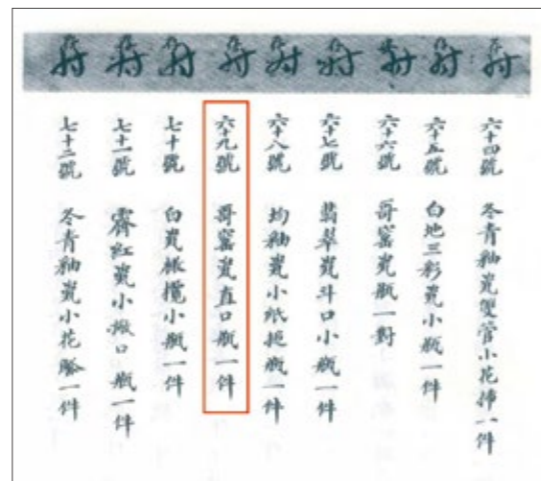 六十四號 冬青釉瓷雙管小花揷一件
六十五號 白地三彩瓷小瓶一件
六十六號 哥窰瓷瓶一對
六十七號 翡翠瓷斗口小瓶一件
六十八號 均釉瓷小紙搥瓶一件
六十九號 哥窰瓷直口瓶一件
七十號 白瓷橄欖小瓶一件
七十一號 霽紅瓷小撇口瓶一件
七十二號 冬青釉瓷小花 一件